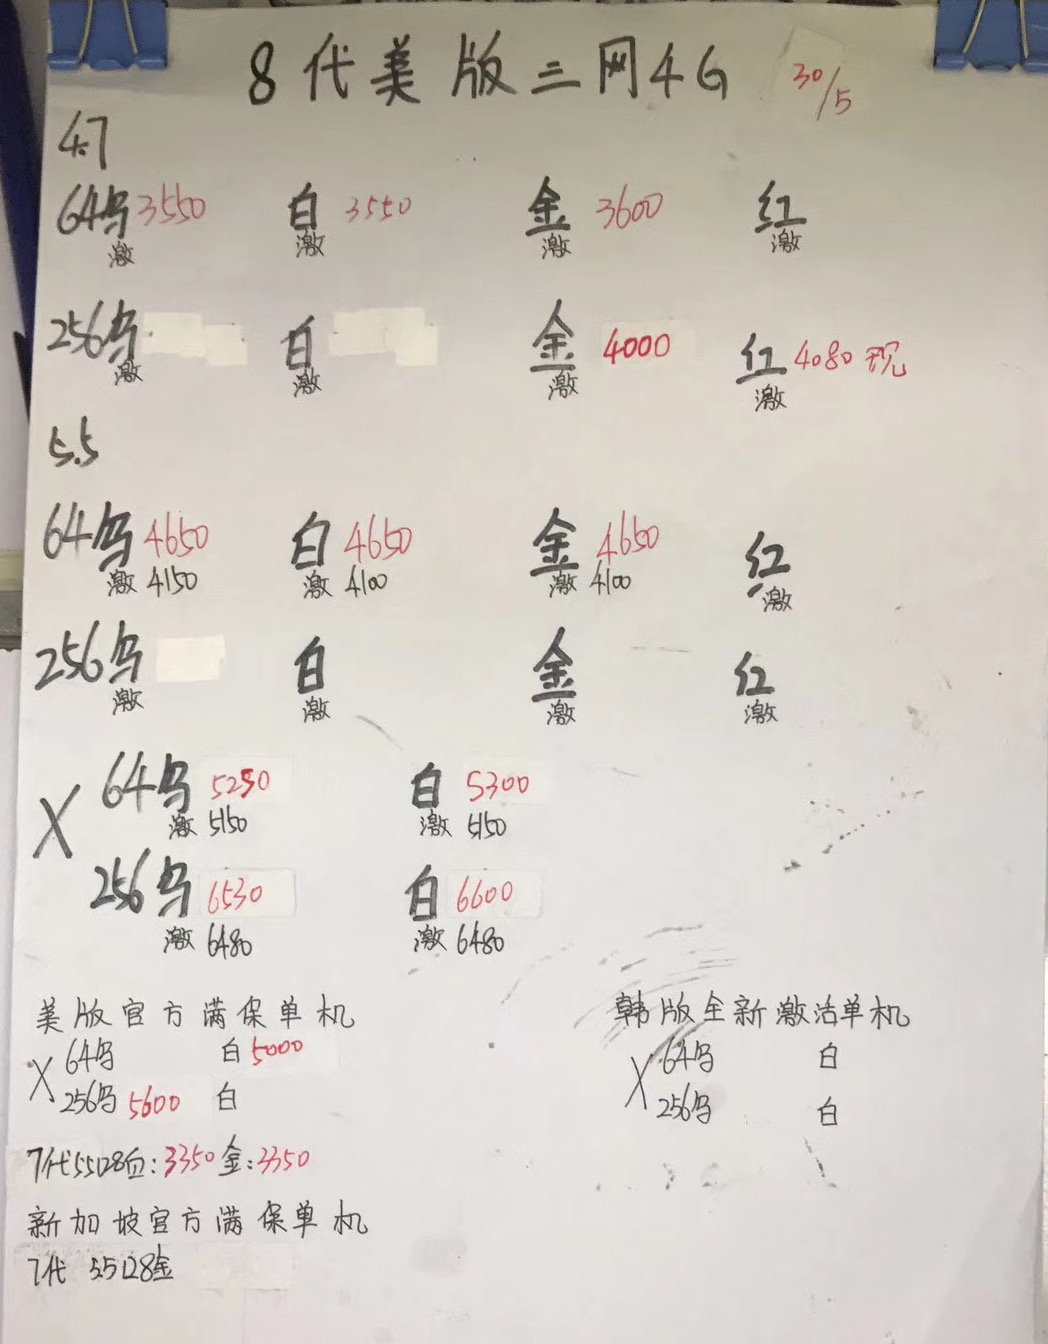 8代美版三网4G 30/5
4.7
64乌3550 白 3550 金 3600 红
激 激 激 激
256乌 白 金 4000 红 4080 现
激 激 激 激
5.5
64乌 4650 白 4650 金 4650 红
激 4150 激 4100 激 4100 激
256乌 白 金 红
激 激 激 激
X 64乌 5250 白 5300
激 5150 激 5150
256乌 6530 白 6600
激 6480 激 6480
美版官方满保单机 韩版全新激活单机
X 64乌 白 5000 X 64乌 白
256乌 5600 白 256乌 白
7代55128血:3350 金:3350
新加坡官方满保单机
7代 55128金